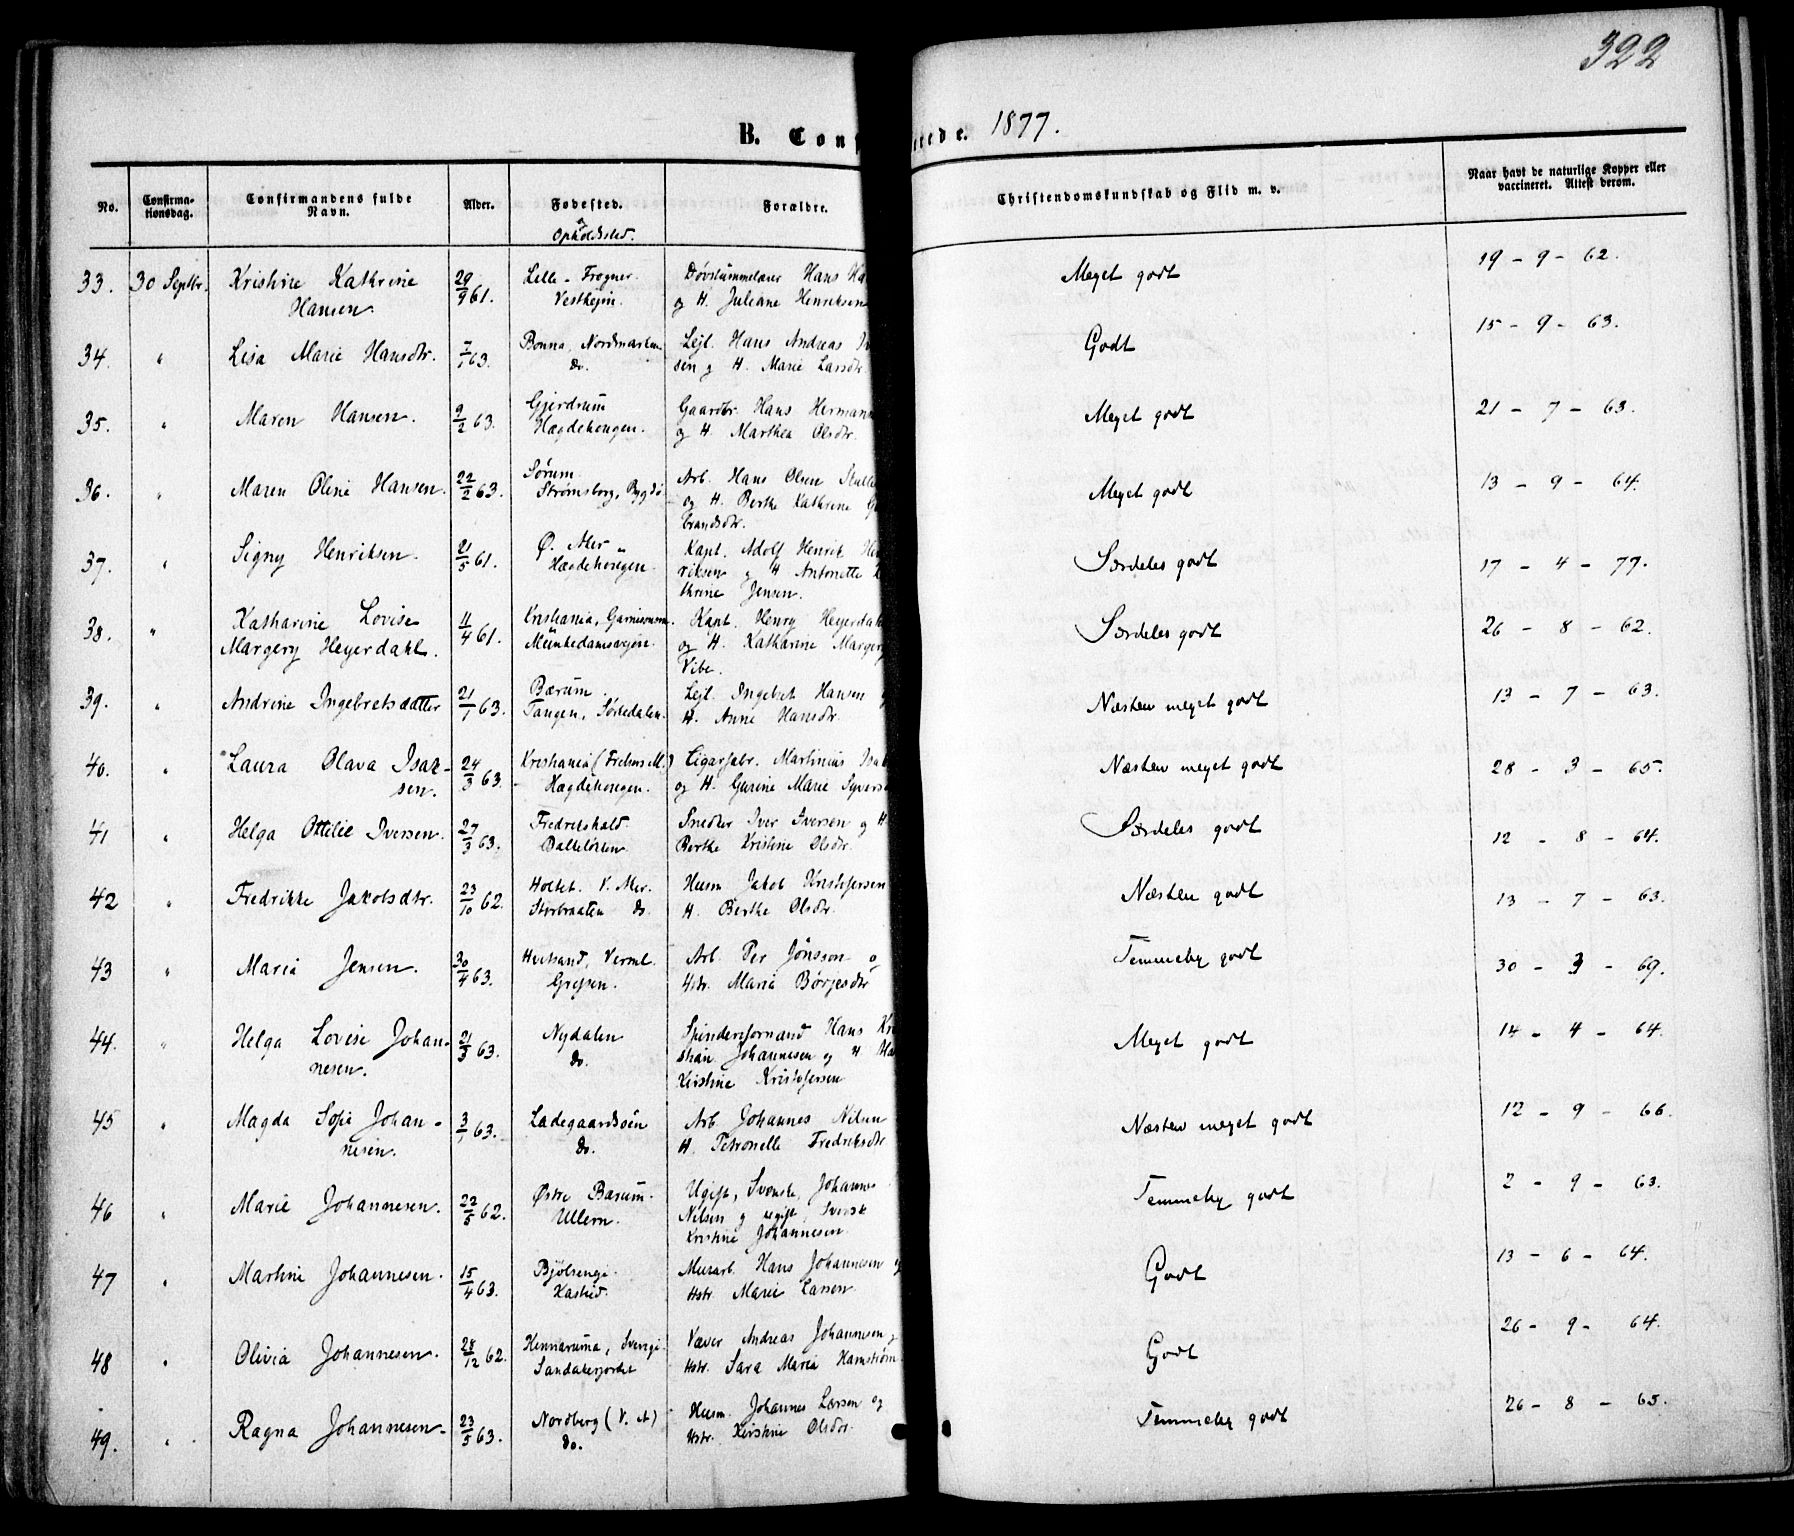 322
B. Conf rede. 1877.
No. Confirma-tionsdag. Confirmandens fulde Navn. Alder. Fødested. og Opholdssted. Forældre. Christendomskundskab og Flid m. v. Naar havt de naturlige Kopper eller vaccineret. Attest derom.
33. 30 Septbr. Kristine Kathrine 29/9 61. Lille-Frogner. Døvstummelærer Hans Ha Meget godt 19 - 9 - 62.
Hansen. Vestheim. og H. Juliane Henriksen
34. " Lisa Marie Hansdtr. 7/1 63. Bonna, Nordmarken Lejl. Hans Andreas Godt 15 - 9 - 63.
do. sen og H. Marie Larsdtr.
35. " Maren Hansen. 9/2 63. Gjerdrum Gaardbr. Hans Herman Meget godt 21 - 7 - 63.
Hægdehougen. og H. Marthea Olsdtr.
36. " Maren Oline Hansen. 22/2 63. Sørum Arb. Hans Olsen Meget godt 13 - 9 - 64.
Strømsborg, Bygdø og H. Berthe Kathrine G
brandsdtr.
37. " Signy Henriksen. 21/5 61. Ø. Aker Kapt. Adolf Henrik Hen Særdeles godt 17 - 4 - 77.
Hægdehougen. riksen og H Antonette
thrine Jensen.
38. " Katharine Lovise 11/4 61. Kristiania, Garnisonsm. Kapt. Henry Heyerdahl Særdeles godt 26 - 8 - 62.
Margery Heyerdahl. Munkedamsvejen. og H. Katharine Margery
Vibe.
39. " Andrine Ingebretsdatter 21/1 63. Bærum. Lejl. Ingebret Hansen Næsten meget godt 13 - 7 - 63.
Tangen, Sørkedalen. H. Anne Hansdtr.
40. " Laura Olava Isak- 24/3 63. Kristiania (Frelsers M.) Cigarfabr. Martinius Isak Næsten meget godt 28 - 3 - 65.
sen. Hægdehougen. og H. Gurine Marie Syvers
41 " Helga Ottilie Iversen. 27/3 63. Fredrikshald. Snedker Iver Iversen og H Særdeles godt 12 - 8 - 64.
Balleløkken Berthe Kristine Olsdtr.
42 " Fredrikke Jakobsdtr. 23/10 62. Holtet. V. Aker. Husm Jakob Kristofersen Næsten godt 13 - 7 - 63.
Storbraaten do. H. Berthe Olsdtr.
43 " Maria Jensen. 30/4 63. Hvitsand, Verml. Arb. Per Jönsson og Temmelig godt 30 - 3 - 69.
Grefsen. Hstr. Maria Börjesdtr
44. " Helga Lovise Johan- 21/3 63. Nydalen Spinderiformand Hans Kri Meget godt 14 - 4 - 64.
nesen. do. stian Johannesen og H
Kristine Kristofersen
45 " Magda Sofie Johan- 3/1 63. Ladegaardsøen Arb Johannes Nilsen Næsten meget godt 12 - 9 - 66.
nesen. do. H. Petronelle Fredriksdtr
46 " Marie Johannesen. 22/5 62. Østre Bærum. Ugift, Svenske, Johannes Temmelig godt 2 - 9 - 63.
Ullern. Nilsen og ugift, Svensk
Kristine Johannesen
47 " Martine Johannesen. 15/4 63. Bjølsengt. Murarb. Hans Johannesen og Godt 13 - 6 - 64.
Kasted. Hstr. Marie Larsen.
48 " Olivia Johannesen. 28/12 62. Hennaruma, Sverige. Væver Andreas Johannesen og Godt 26 - 9 - 64.
Sandakerjordet Hstr. Sara Maria Hamstrøm
49. " Ragna Johannesen. 23/5 63. Nordberg (V. A) Husm. Johannes Larsen og Temmelig godt 26 - 8 - 65.
do. Hstr. Kirstine Olsdtr.